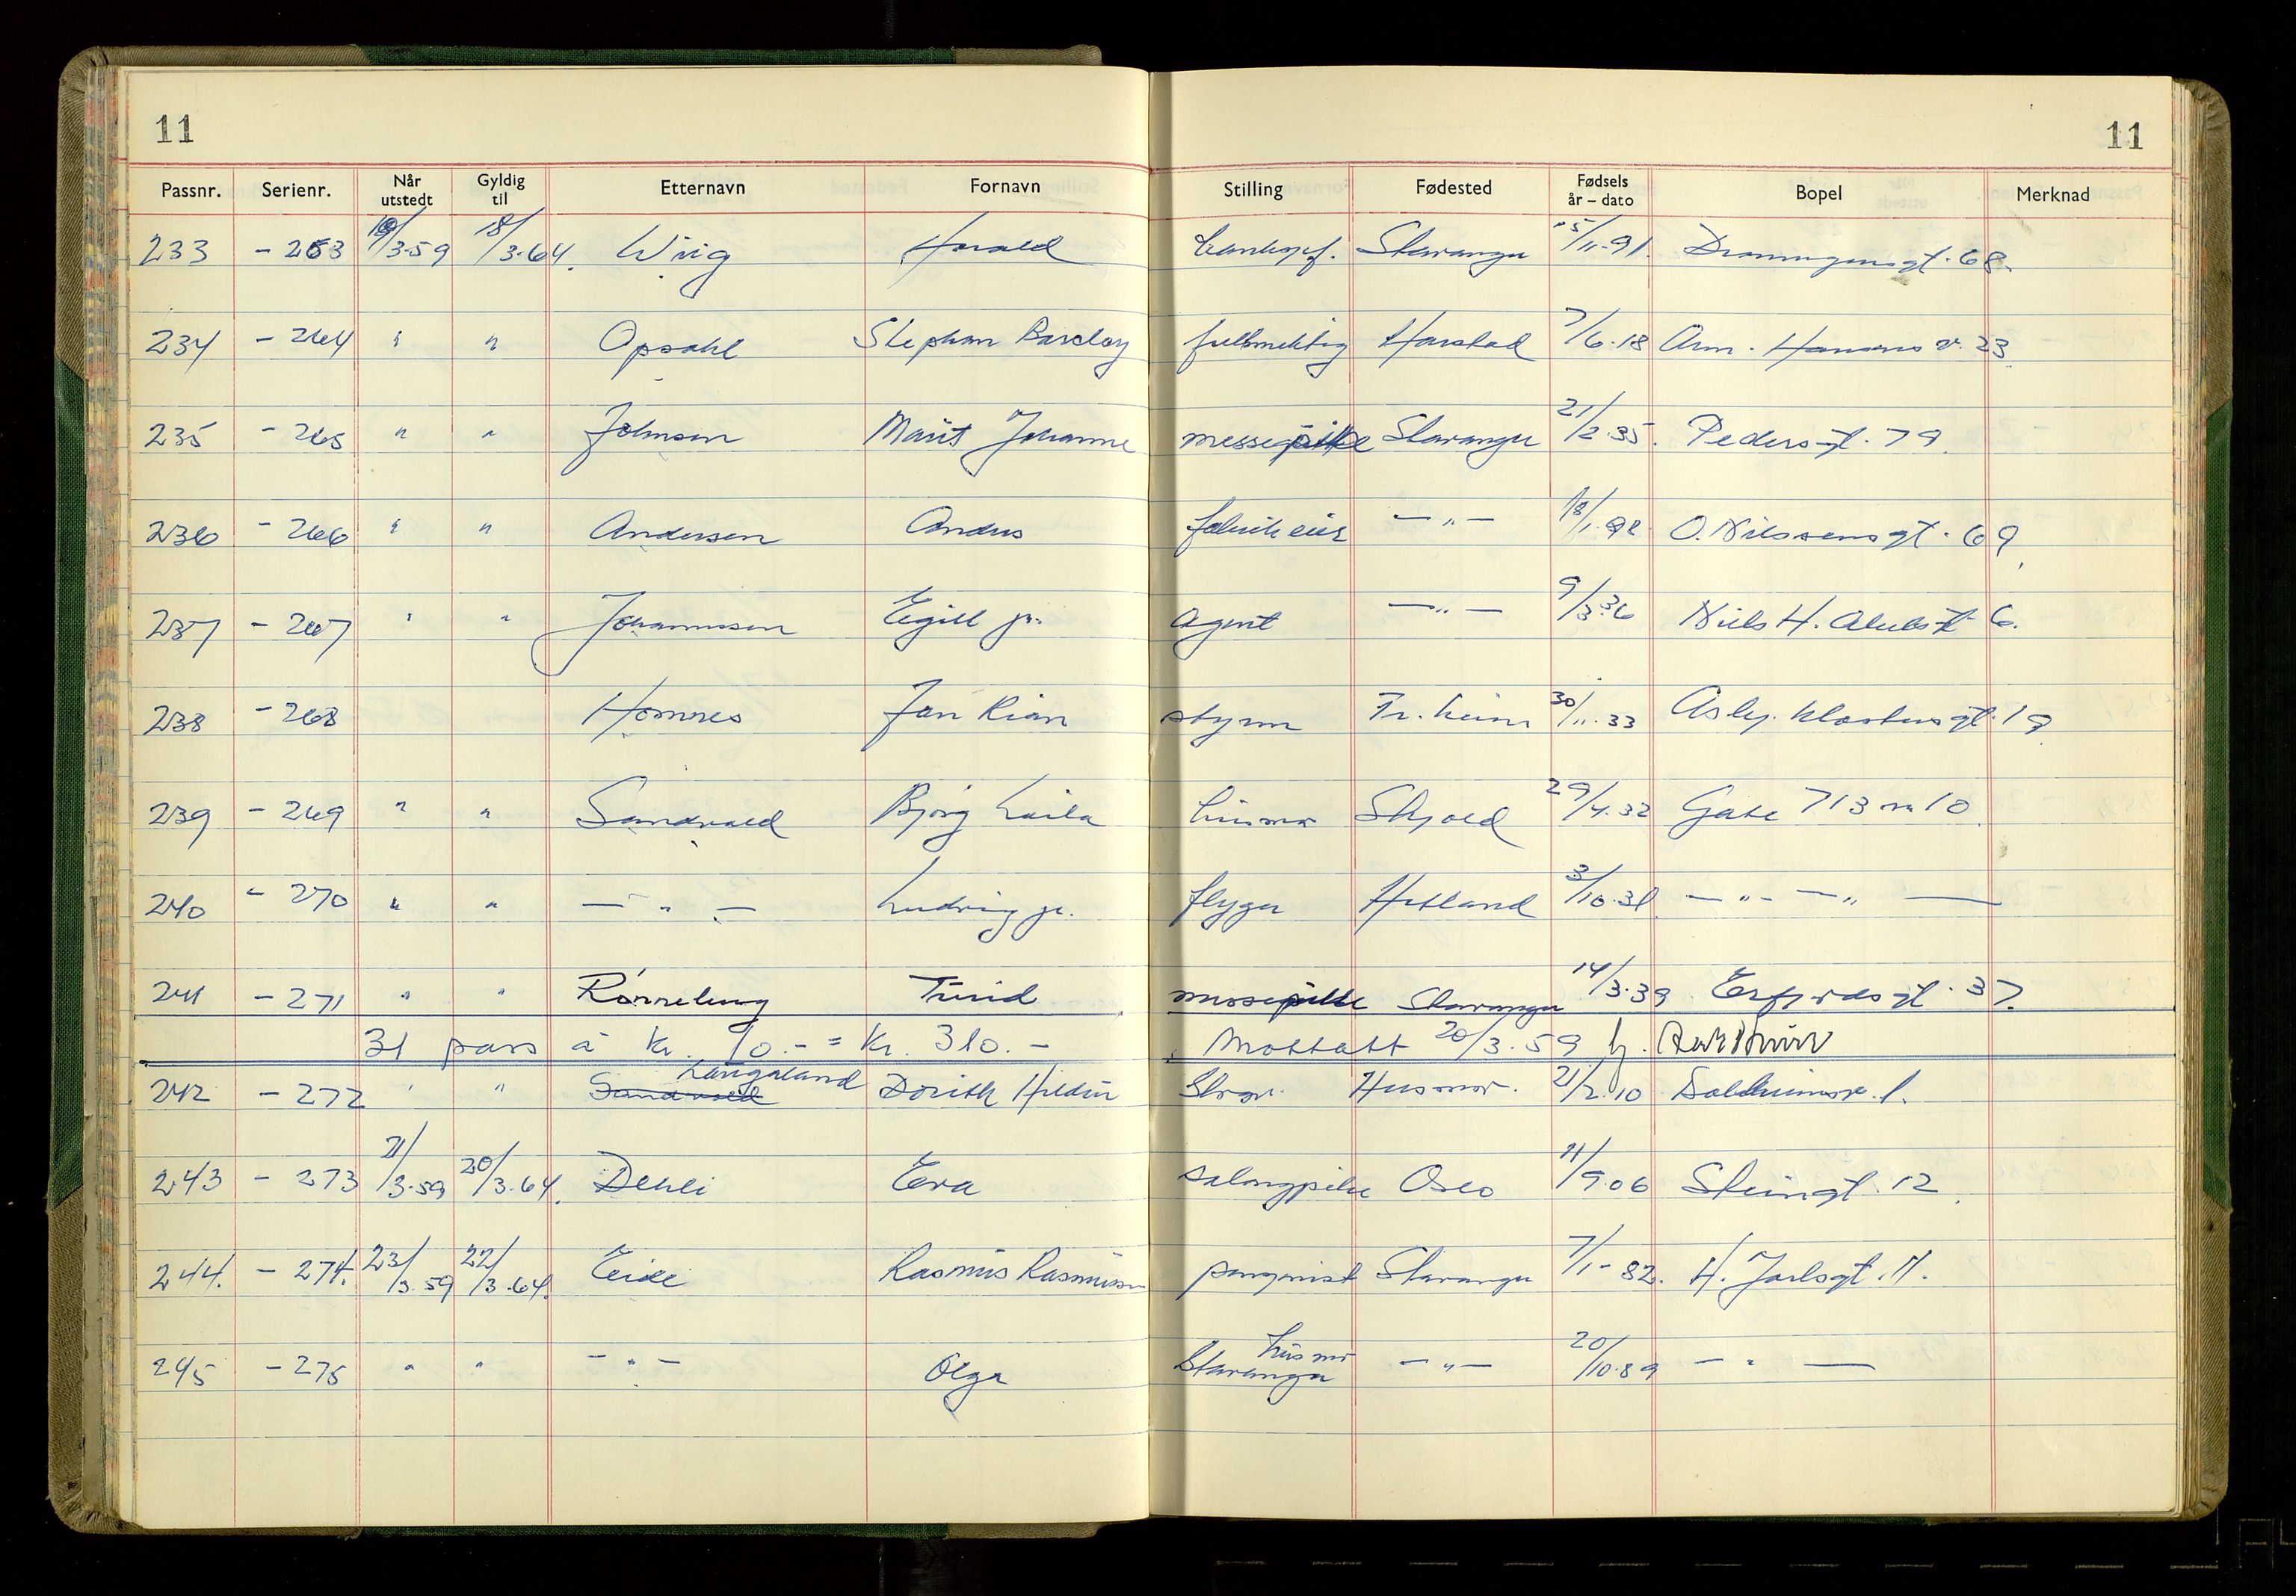 11 11
Passnr. Serienr. Når utstedt Gyldig til Etternavn Fornavn Stilling Fødested Fødsels år – dato Bopel Merknad
233 - 263 19/3.59 18/3.64. Wiig Harald Stavanger 5/11.91. Dronningensgt. 68.
234 - 264 " " Opsahl Stephan Barclay fullmektig Harstad 7/6.18 Arm. Hansens v. 23
235 - 265 " " Johnsen Marit Johanne messepike Stavanger 21/2.35. Pedersgt. 79.
236 - 266 " " Andersen Andreas fabrikeier — " — 18/1.92 O. Nilssensgt. 69.
237 - 267 " " Johannesen Egill jr. agent — " — 9/3.36 Niels H. Abelsgt 6.
238 - 268 Homnes Jan Kian styrm Tr.heim 30/11.33 Asbj. Klostersgt. 19
239 - 269 " " Sandvold Bjørg Laila husmor Skjold 29/4.32 Gate 713 nr 10.
240 - 270 " " — " — Ludvig jr. flyger Hetland 3/10.31 — " — " —
241 - 271 " " Rønneberg Turid messepike Stavanger 14/3.39 Erfjordsgt. 37.
31 pass à kr. 10.- = Kr. 310.- Mottatt 20/3.59
242 - 272 " " Sandvold Langaland Dorith Hildur Stvgr. Husmor. 21/2.10 Solheimsv. 1.
243 - 273 21/3.59 20/3.64. Dehli Eva salongpike Oslo 11/9.06 Steingt. 12.
244. - 274. 23/3.59 22/3.64. Eide Rasmus Rasmussen pensjonist Stavanger 7/1-82. H. Jarlsgt. 11.
245 - 275 " " — " — Olga Stavanger husmor — " — 20/10.89 — " —